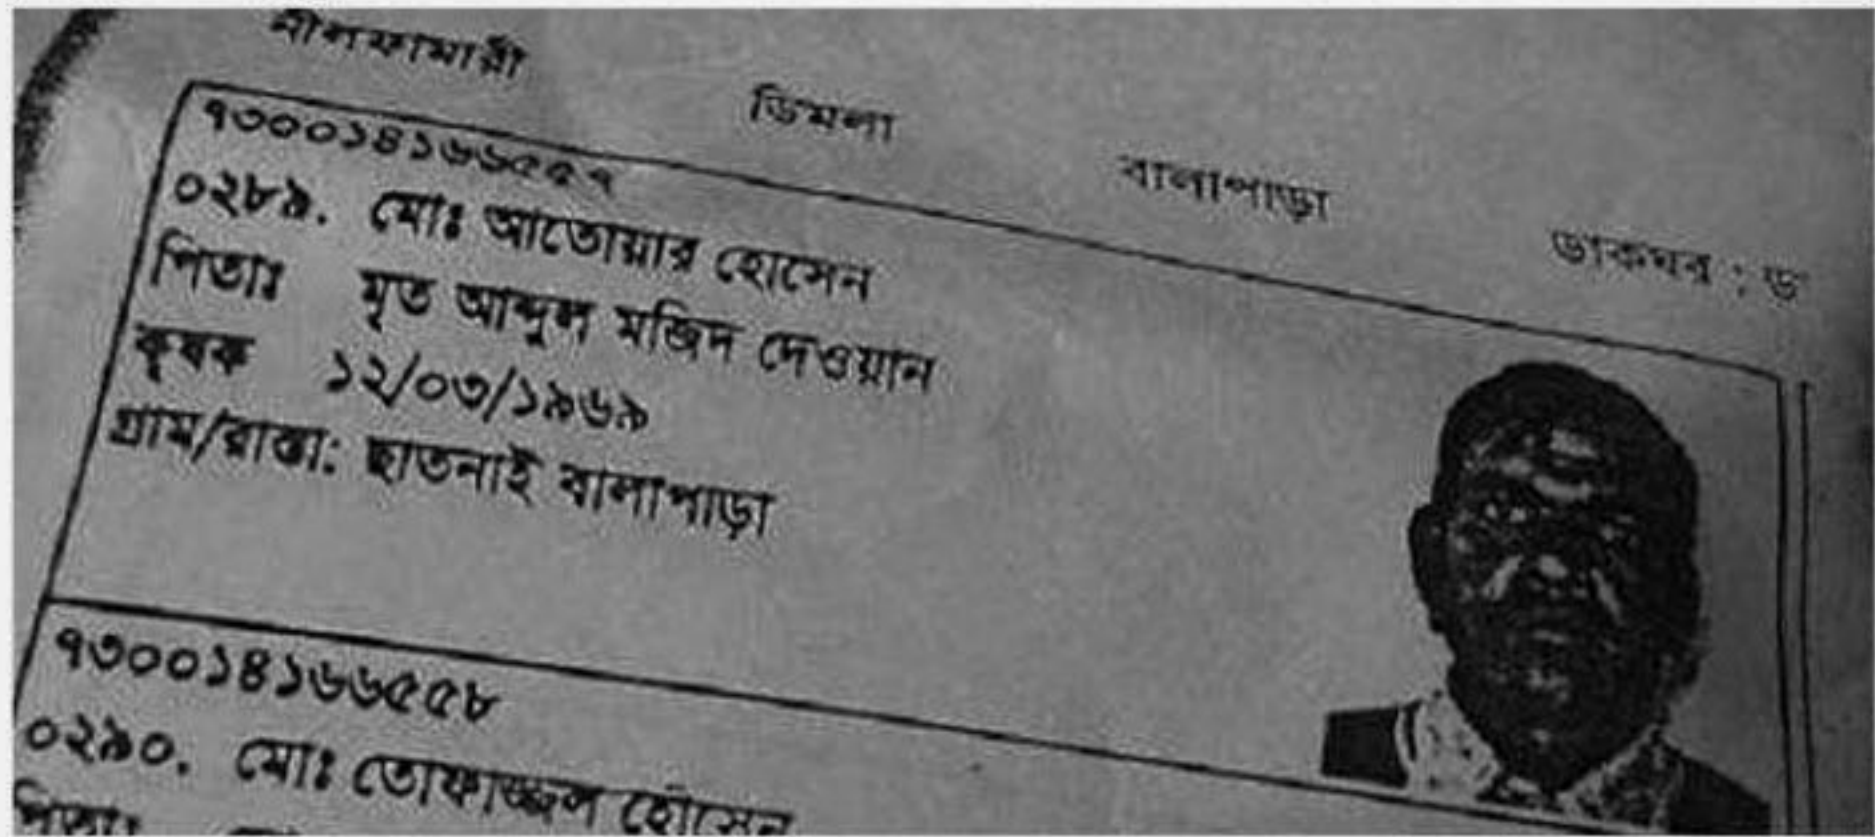 নীলফামারী ডিমলা বালাপাড়া ডাকঘর : ড
৭৩০০১৪১৬৬৫৫৭
০২৮৯. মোঃ আতোয়ার হোসেন
পিতাঃ মৃত আব্দুল মজিদ দেওয়ান
কৃষক ১২/০৩/১৯৬৯
গ্রাম/রাস্তা: ছাতনাই বালাপাড়া
৭৩০০১৪১৬৬৫৫৮
০২৯০. মোঃ তোফাজ্জল হোসেন
পিতাঃ